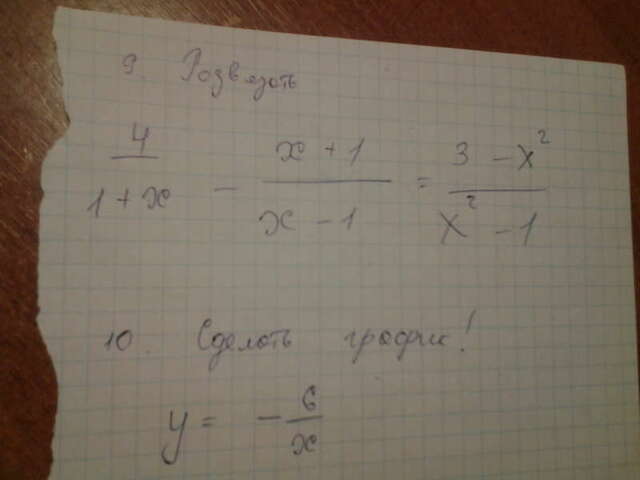 9. Розвязать
4/(1 + x) - (x + 1)/(x - 1) = (3 - x²)/(x² - 1)
10. Сделать график!
y = - 6/x